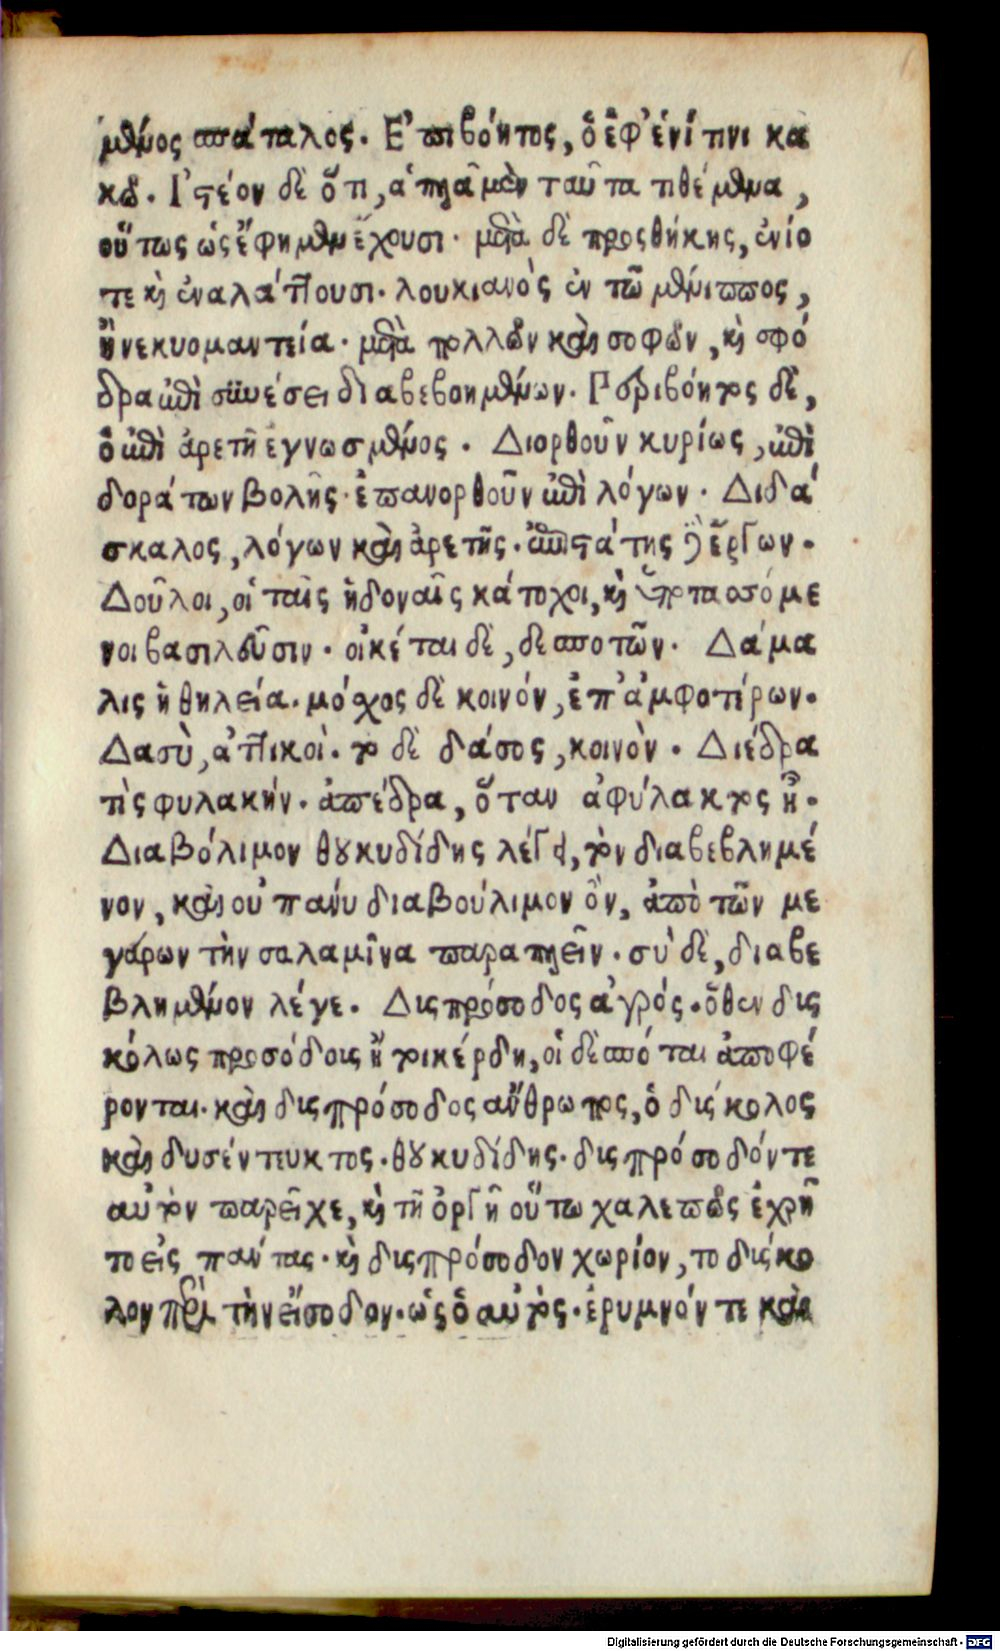 μένος ἀπάταλος. Ἐπιβόητος, ὁ ἐφ' ἑνί τινι κα
κῷ. Ἰστέον δὲ ὅτι, ἁπλᾶ μὲν ταῦτα τιθέμενα,
οὕτως ὡς ἔφημεν ἔχουσι. μετὰ δὲ προςθήκης, ἐνίο
τε καὶ ἐναλάττουσι. λουκιανὸς ἐν τῶ μένιππος,
ἢ νεκυομαντεία. μετὰ πολλῶν καὶ σοφῶν, καὶ σφό
δρα ἐπὶ συνέσει διαβεβοημένων. Περιβόητος δὲ,
ὁ ἐπὶ ἀρετῆ ἐγνωσμένος. Διορθοῦν κυρίως, ἐπὶ
δοράτων βολῆς. ἐπανορθοῦν ἐπὶ λόγων. Διδά
σκαλος, λόγων καὶ ἀρετῆς. ἐπιστάτης δὲ ἔργων.
Δοῦλοι, οἱ ταῖς ἡδοναῖς κάτοχοι, καὶ ὑποτασσόμε
νοι βασιλεῦσιν. οἰκέται δὲ, δεσποτῶν. Δάμα
λις ἡ θηλεία. μόσχος δὲ κοινόν, ἐπ' ἀμφοτέρων.
Δασὺ, ἀττικοὶ. τὸ δὲ δάσος, κοινὸν. Διέδρα
τὶς φυλακήν. ἀπέδρα, ὅταν ἀφύλακτος ἦ.
Διαβόλιμον θουκυδίδης λέγει, τὸν διαβεβλημέ
νον, καὶ οὐ πάνυ διαβούλιμον ὂν, ἀπὸ τῶν με
γάρων τὴν σαλαμῖνα παραπλεῖν. σὺ δὲ, διαβε
βλημένον λέγε. Δισπρόσοδος ἀγρός. ὅθεν δις
κόλως προσόδοις ἢ τικέρδη, οἱ δεσπόται ἀποφέ
ρονται. καὶ δισπρόσοδος ἄνθρωπος, ὁ δίσκολος
καὶ δυσέντευκτος. θουκυδίδης. δισπρόσοδόν τε
αὑτὸν παρεῖχε, καὶ τῆ ὀργῆ οὕτω χαλεπῶς ἐχρῆ
το εἰς πάντας. καὶ δισπρόσοδον χωρίον, το δίσκο
λον περὶ τὴν εἴσοδον. ὡς ὁ αὐτὸς. ἐρυμνόν τε καὶ
Digitalisierung gefördert durch die Deutsche Forschungsgemeinschaft - DFG